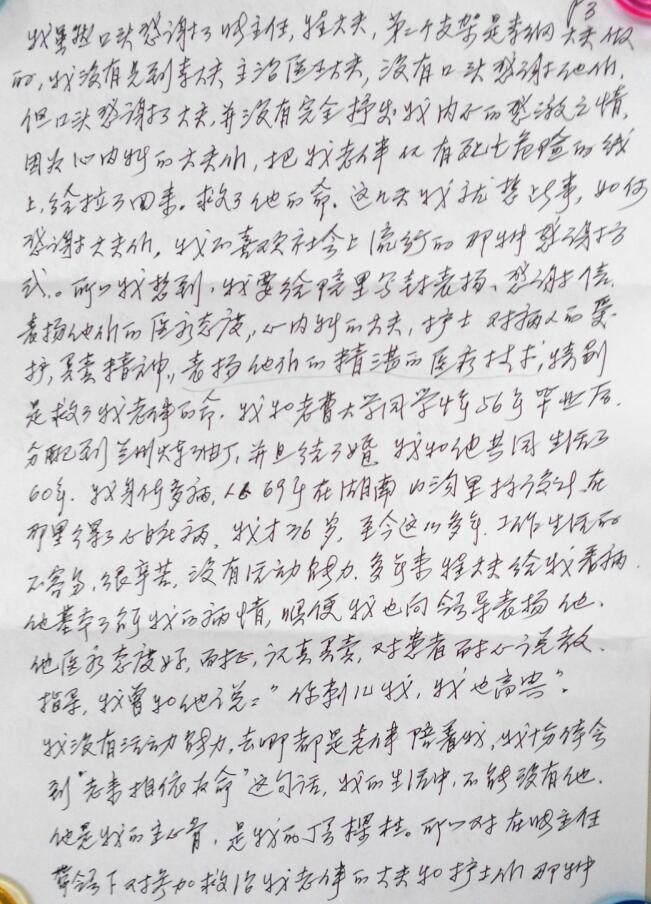 P3
我虽然口头感谢了 主任，  大夫，第二个支架是李纲大夫做
的，我没有见到李大夫 主治医王大夫，没有口头感谢他们，
但口头感谢了大夫，并没有完全抒发我内心的感激之情，
因为心内科的大夫们，把我老伴从有死亡危险的线
上，给拉了回来。救了他的命。这几天我就想此事，如何
感谢大夫们，我不喜欢社会上流行的那种感谢方
式。所以我想到，我要给院里写封表扬、感谢信。
表扬他们的医疗态度，心内科的大夫，护士对病人的爱
护，负责精神，表扬他们的精湛的医疗技术，特别
是救了我老伴的命。我和老曹大学同学 56年毕业后，
分配到兰州炼油厂，并且结了婚 我和他共同生活了
60年。我身体多病，从69年在湖南 山沟里搞设计，在
那里得了心 病，我才36岁，至今这 多年，工作生活的
不容易，很辛苦，没有活动能力。多年来 大夫给我看病，
他基本了解我的病情，顺便我也向领导表扬他，
他医疗态度好，  ，认真负责，对患者耐心说教、
指导，我曾和他说：“你 我，我也高兴”。
我没有活动能力，去哪都是老伴陪着我，我十分体会
到“老来相依为命”这句话，我的生活中，不能没有他，
他是我的主心骨，是我的顶梁柱。所以对在 主任
带领下对参加救治我老伴的大夫和护士们那种